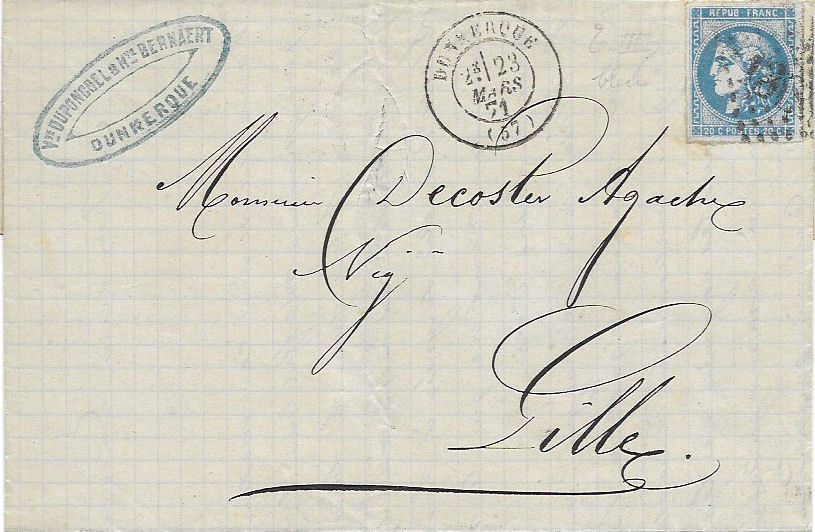 Vve DUPONCHEL & Hri BERNAERT
DUNKERQUE
DUNKERQUE
2E 23
MARS
71
(57)
REPUB FRANC
20 C POSTES 20 C
bleu
Monsieur Decoster Agache
Négt
Lille